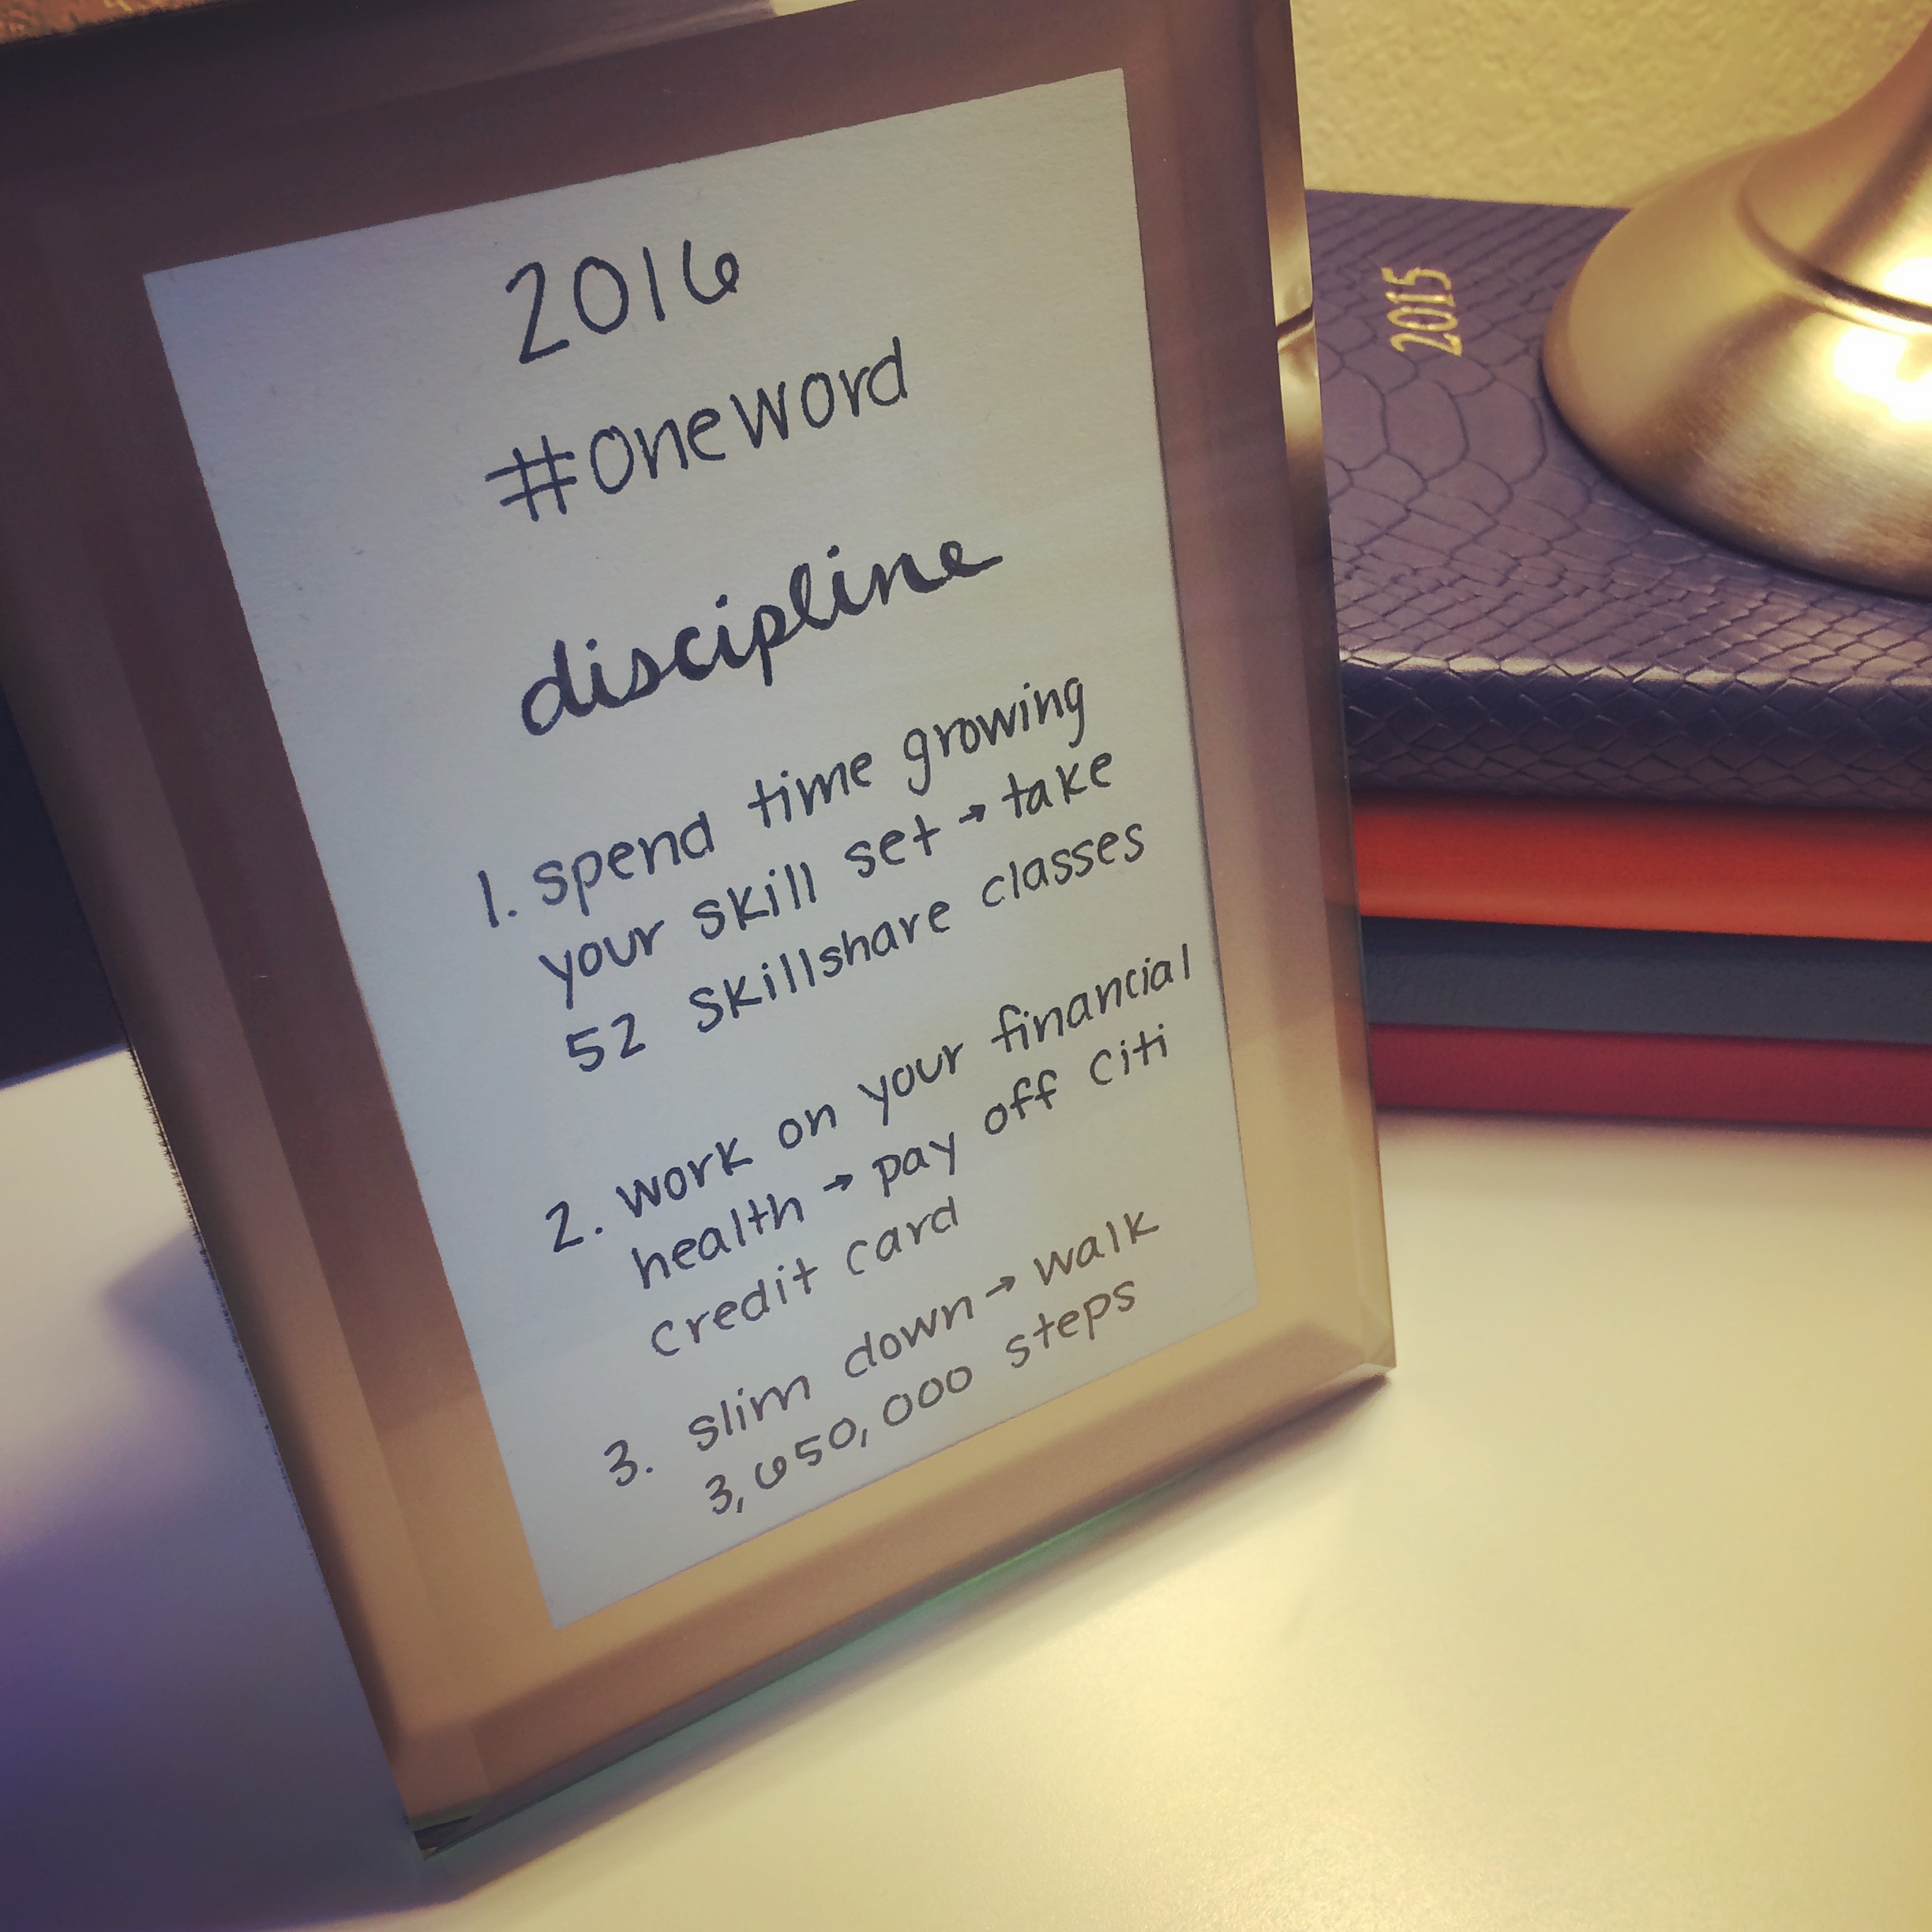 2016
#oneword
discipline
1. spend time growing
your skill set → take
52 Skillshare classes
2. work on your financial
health → pay off Citi
credit card
3. slim down → walk
3,650,000 steps
2015